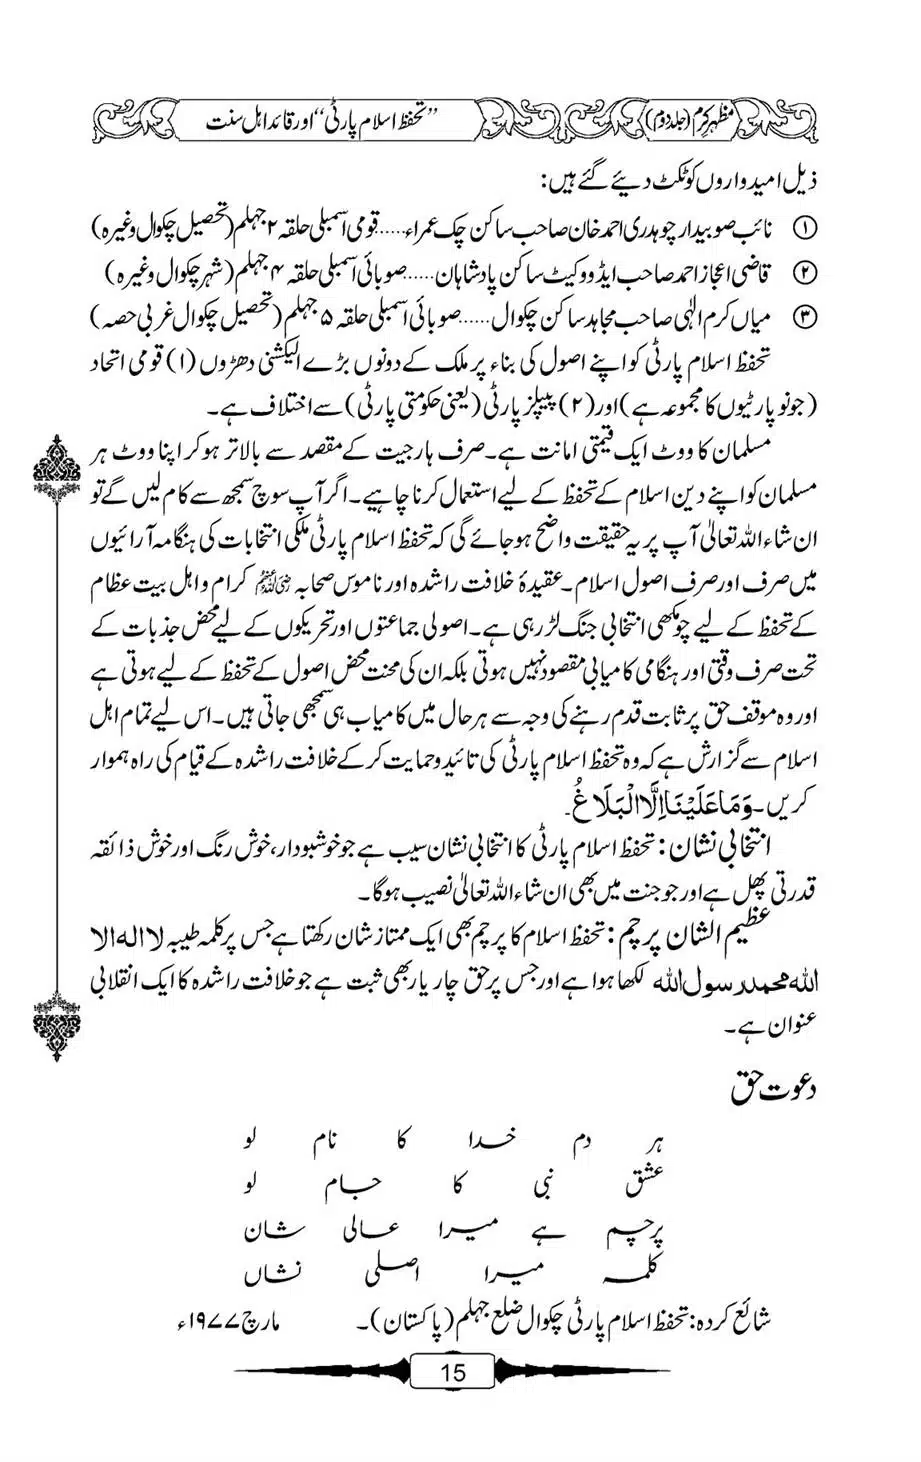 مظہر کرم (جلد دوم)
”تحفظ اسلام پارٹی“ اور قائد اہل سنت
ذیل امیدواروں کو ٹکٹ دیئے گئے ہیں:
① نائب صوبیدار چوہدری احمد خان صاحب ساکن چک عمراء.....قومی اسمبلی حلقہ ۲ جہلم (تحصیل چکوال وغیرہ)
② قاضی اعجاز احمد صاحب ایڈووکیٹ ساکن پادشاہان.....صوبائی اسمبلی حلقہ ۴ جہلم (شہر چکوال وغیرہ)
③ میاں کرم الٰہی صاحب مجاہد ساکن چکوال......صوبائی اسمبلی حلقہ ۵ جہلم (تحصیل چکوال غربی حصہ)
تحفظ اسلام پارٹی کو اپنے اصول کی بناء پر ملک کے دونوں بڑے الیکشنی دھڑوں (۱) قومی اتحاد
(جو نو پارٹیوں کا مجموعہ ہے) اور (۲) پیپلز پارٹی (یعنی حکومتی پارٹی) سے اختلاف ہے۔
مسلمان کا ووٹ ایک قیمتی امانت ہے۔ صرف ہار جیت کے مقصد سے بالاتر ہو کر اپنا ووٹ ہر
مسلمان کو اپنے دین اسلام کے تحفظ کے لیے استعمال کرنا چاہیے۔ اگر آپ سوچ سمجھ سے کام لیں گے تو
ان شاء اللہ تعالیٰ آپ پر یہ حقیقت واضح ہو جائے گی کہ تحفظ اسلام پارٹی ملکی انتخابات کی ہنگامہ آرائیوں
میں صرف اور صرف اصول اسلام۔ عقیدۂ خلافت راشدہ اور ناموس صحابہ رضی اللہ عنہم کرام و اہل بیت عظام
کے تحفظ کے لیے چومکھی انتخابی جنگ لڑ رہی ہے۔ اصولی جماعتوں اور تحریکوں کے لیے محض جذبات کے
تحت صرف وقتی اور ہنگامی کامیابی مقصود نہیں ہوتی بلکہ ان کی محنت محض اصول کے تحفظ کے لیے ہوتی ہے
اور وہ موقف حق پر ثابت قدم رہنے کی وجہ سے ہر حال میں کامیاب ہی سمجھی جاتی ہیں۔ اس لیے تمام اہل
اسلام سے گزارش ہے کہ وہ تحفظ اسلام پارٹی کی تائید و حمایت کر کے خلافت راشدہ کے قیام کی راہ ہموار
کریں۔ وَمَا عَلَيْنَا إِلَّا الْبَلَاغُ۔
انتخابی نشان: تحفظ اسلام پارٹی کا انتخابی نشان سیب ہے جو خوشبودار، خوش رنگ اور خوش ذائقہ
قدرتی پھل ہے اور جو جنت میں بھی ان شاء اللہ تعالیٰ نصیب ہوگا۔
عظیم الشان پرچم: تحفظ اسلام کا پرچم بھی ایک ممتاز شان رکھتا ہے جس پر کلمہ طیبہ لا الہ الا
اللہ محمد رسول اللہ لکھا ہوا ہے اور جس پر حق چار یار بھی ثبت ہے جو خلافت راشدہ کا ایک انقلابی
عنوان ہے۔
دعوت حق
ہر دم خدا کا نام لو
عشق نبی کا جام لو
پرچم ہے میرا عالی شان
کلمہ میرا اصلی نشاں
شائع کردہ: تحفظ اسلام پارٹی چکوال ضلع جہلم (پاکستان)۔ مارچ ۱۹۷۷ء
15